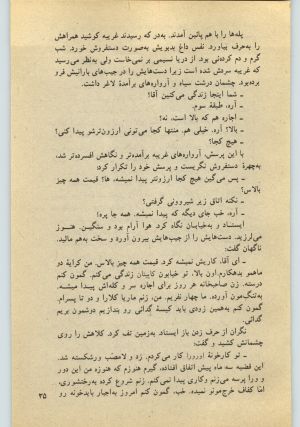 پله‌ها را با هم پائین آمدند. به‌در که رسیدند غریبه کوشید همراهش
را به‌حرف بیاورد. نفس داغ بدبویش به‌صورت دستفروش خورد. شب
گرم و دم کرده‌ئی بود. از دریا نسیمی بر نمی‌خاست ولی به‌نظر می‌رسید
که غریبه سردش شده است زیرا دست‌هایش را در جیب‌های بارانیش فرو
برده بود. چشمان درشت سیاه و آرواره‌های برآمدهٔ لاغر داشت.
– شما اینجا زندگی می‌کنین آقا؟
– آره، طبقه سوم.
– اجاره هم که بالا است، نه؟
– بالا؟ آره. خیلی هم. منتها کجا می‌تونی ارزون‌ترشو پیدا کنی؟
– هیچ کجا؟
با این پرسش، آرواره‌های غریبه برآمده‌تر و نگاهش افسرده‌تر شد،
به‌چهرهٔ دستفروش نگریست و پرسش خود را تکرار کرد:
– پس می‌گین هیچ کجا ارزونتر پیدا نمیشه، ها؟ قیمت همه چیز
بالاس؟
– نکنه اتاق زیر شیروونی گرفتی؟
– آره. خب جای دیگه که پیدا نمیشه. همه جا پره!
ایستاد و به‌خیابان نگاه کرد. هوا آرام بود و سنگین. هنوز
می‌لرزید. دست‌هایش را از جیب‌هایش بیرون آورد و سخت به‌هم مالید.
ناگهان گفت:
– ای آقا، کاریش نمیشه کرد. قیمت همه چیز بالاس. من کرایهٔ دو
ماهمو بدهکارم اون بالا، تو خیابون کاپیتان زندگی می‌کنم. گمون کنم
درسته. زن صاحبخانه هر روز برای اجاره سر و کله‌اش پیدا میشه.
به‌تنگ‌مون آورده. ما چهار نفریم. من، زنم ماریا کلارا و دو تا پسرام.
گمون کنم به‌همین زودی باید کیسهٔ گدائی رو بندازیم دوشمون بریم
گدائی.
نگران از حرف زدن باز ایستاد. به‌زمین تف کرد. کلاهش را روی
چشمانش کشید و گفت:
– تو کارخونهٔ اورورا کار می‌کردم. زد و لامصب ورشکسته شد.
این قضیه سه ماه پیش اتفاق افتاده، گیرم هنوزم که هنوزه من این دور
و ورا پرسه می‌زنم وکاری پیدا نمی‌کنم. زنم شروع کرده به‌رختشوری،
امّا کفاف خرج‌مونو نمیده. خب، گمون کنم امروز به‌اجبار بایدخونه رو
۳۵